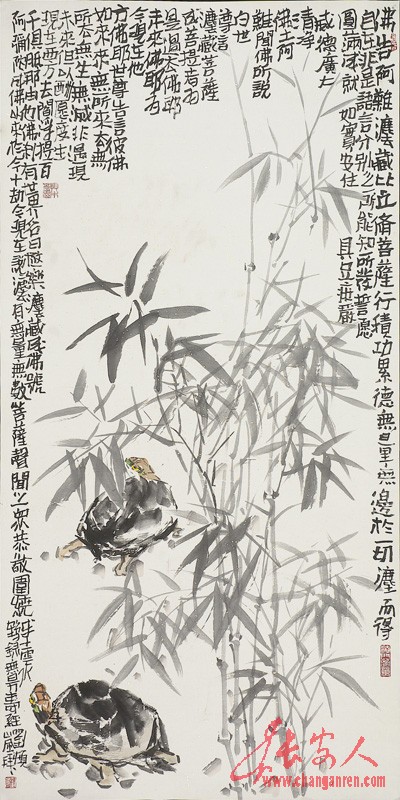 弗告阿難灋藏比丘脩菩薩行積功累德無量無邊於一切灋而得
自在非是語言分別之所能知所發誓願
圓滿成就如實安住具足莊嚴
威德廣大
清淨
佛土阿
難聞佛所說
白世
尊言
灋藏菩薩
成菩提者為
是過去佛耶
未來佛耶為
今現在他
方佛耶世尊告言彼佛
如來來無所來去無
所去無生無滅非過現
未來但以酬願度生
現在西方去閻浮提百
千俱胝那由他佛剎有世界名曰極樂灋藏成佛號
阿彌陀成佛以來於今十劫今現在說灋有無量無數菩薩聲聞之眾恭敬圍繞
錄無量壽經
长安人
www.changanren.com